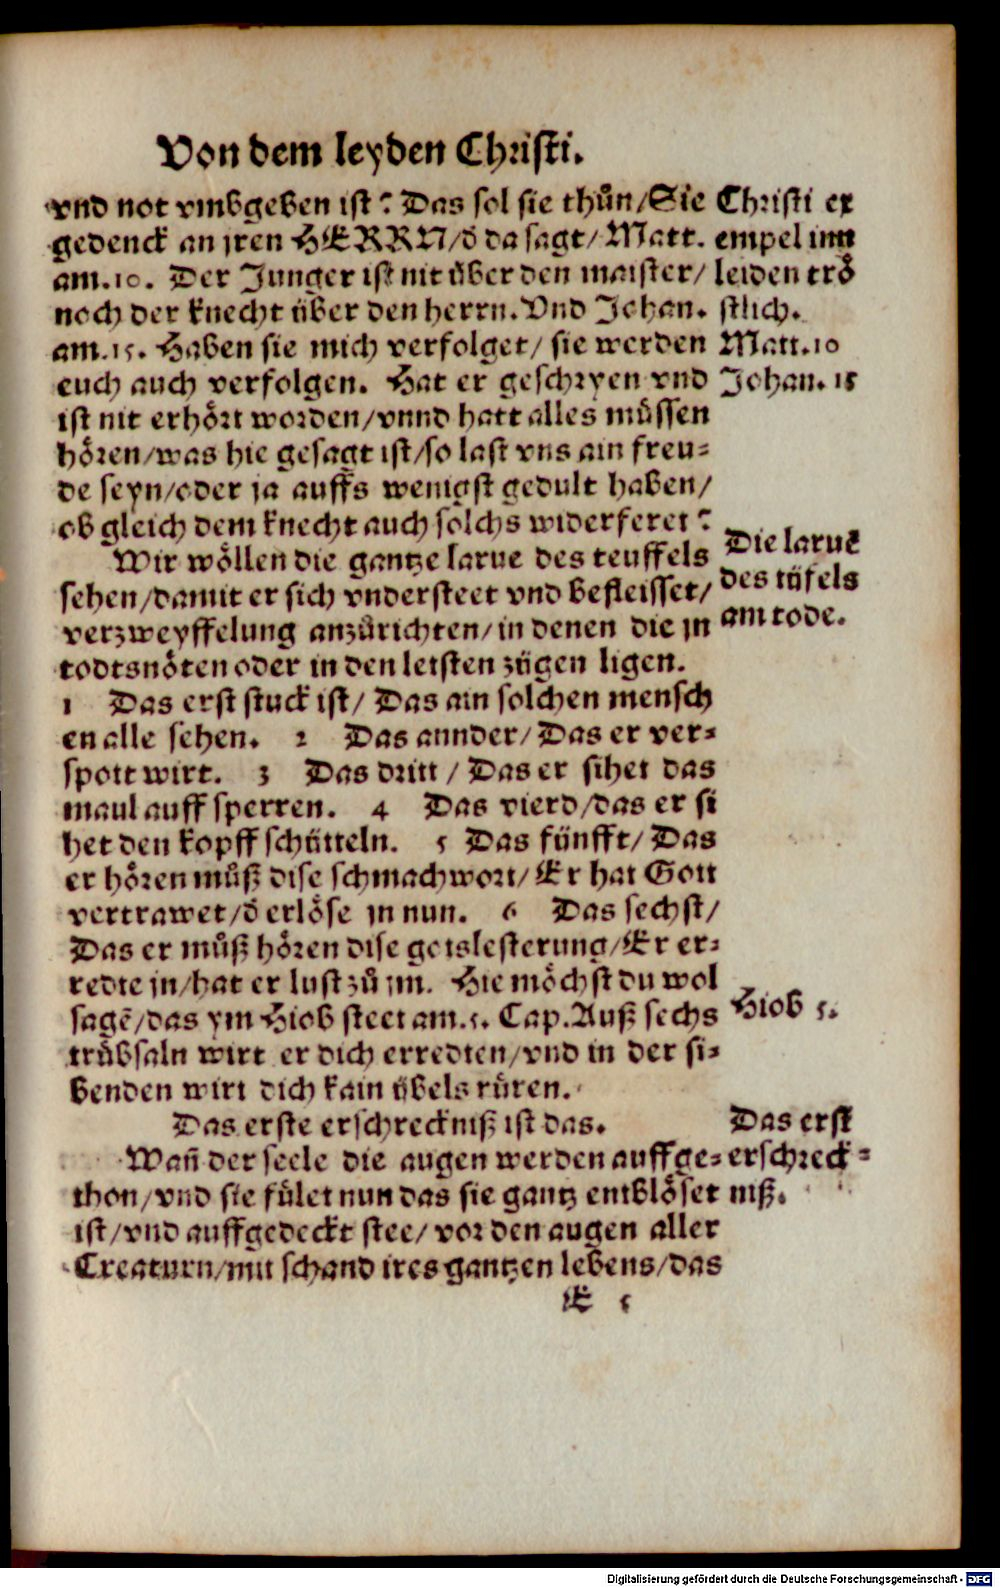 Von dem leyden Christi.
vnd not vmbgeben ist? Das sol sie thůn/Sie
gedenck an jren HERRN/d̃ da sagt/Matt.
am.10. Der Junger ist nit über den maister/
noch der knecht über den herrn. Vnd Johan.
am.15. Haben sie mich verfolget/ sie werden
euch auch verfolgen. Hat er geschryen vnd
ist nit erhört worden/vnnd hatt alles müssen
hören/was hie gesagt ist/so last vns ain freu-
de seyn/oder ja auffs wenigst gedult haben/
ob gleich dem knecht auch solchs widerferet?
Wir wöllen die gantze larue des teuffels
sehen/damit er sich vndersteet vnd befleisset/
verzweyffelung anzůrichten/in denen die jn
todtsnöten oder in den letsten zügen ligen.
1 Das erst stuck ist/ Das ain solchen mensch
en alle sehen. 2 Das annder/Das er ver-
spott wirt. 3 Das dritt/ Das er sihet das
maul auff sperren. 4 Das vierd/das er si
het den kopff schütteln. 5 Das fünfft/ Das
er hören můß dise schmachwort/Er hat Gott
vertrawet/d̃ erlöse jn nun. 6 Das sechst/
Das er můß hören dise gotslesterung/Er er-
redte jn/hat er lust zů jm. Hie möchst du wol
sagē/das ym Hiob steet am.5. Cap. Auß sechs
trübsaln wirt er dich erredten/vnd in der si-
benden wirt dich kain übels rüren.
Das erste erschreckniß ist das.
Wañ der seele die augen werden auffge-
thon/vnd sie fület nun das sie gantz entblöset
ist/vnd auffgedeckt stee/vor den augen aller
Creaturn/mit schand ires gantzen lebens/das
E 5
Christi ex
empel inn
leiden trö
stlich.
Matt.10
Johan. 15
Die larue
des tüfels
am tode.
Hiob 5.
Das erst
erschreck-
niß.
Digitalisierung gefördert durch die Deutsche Forschungsgemeinschaft - DFG